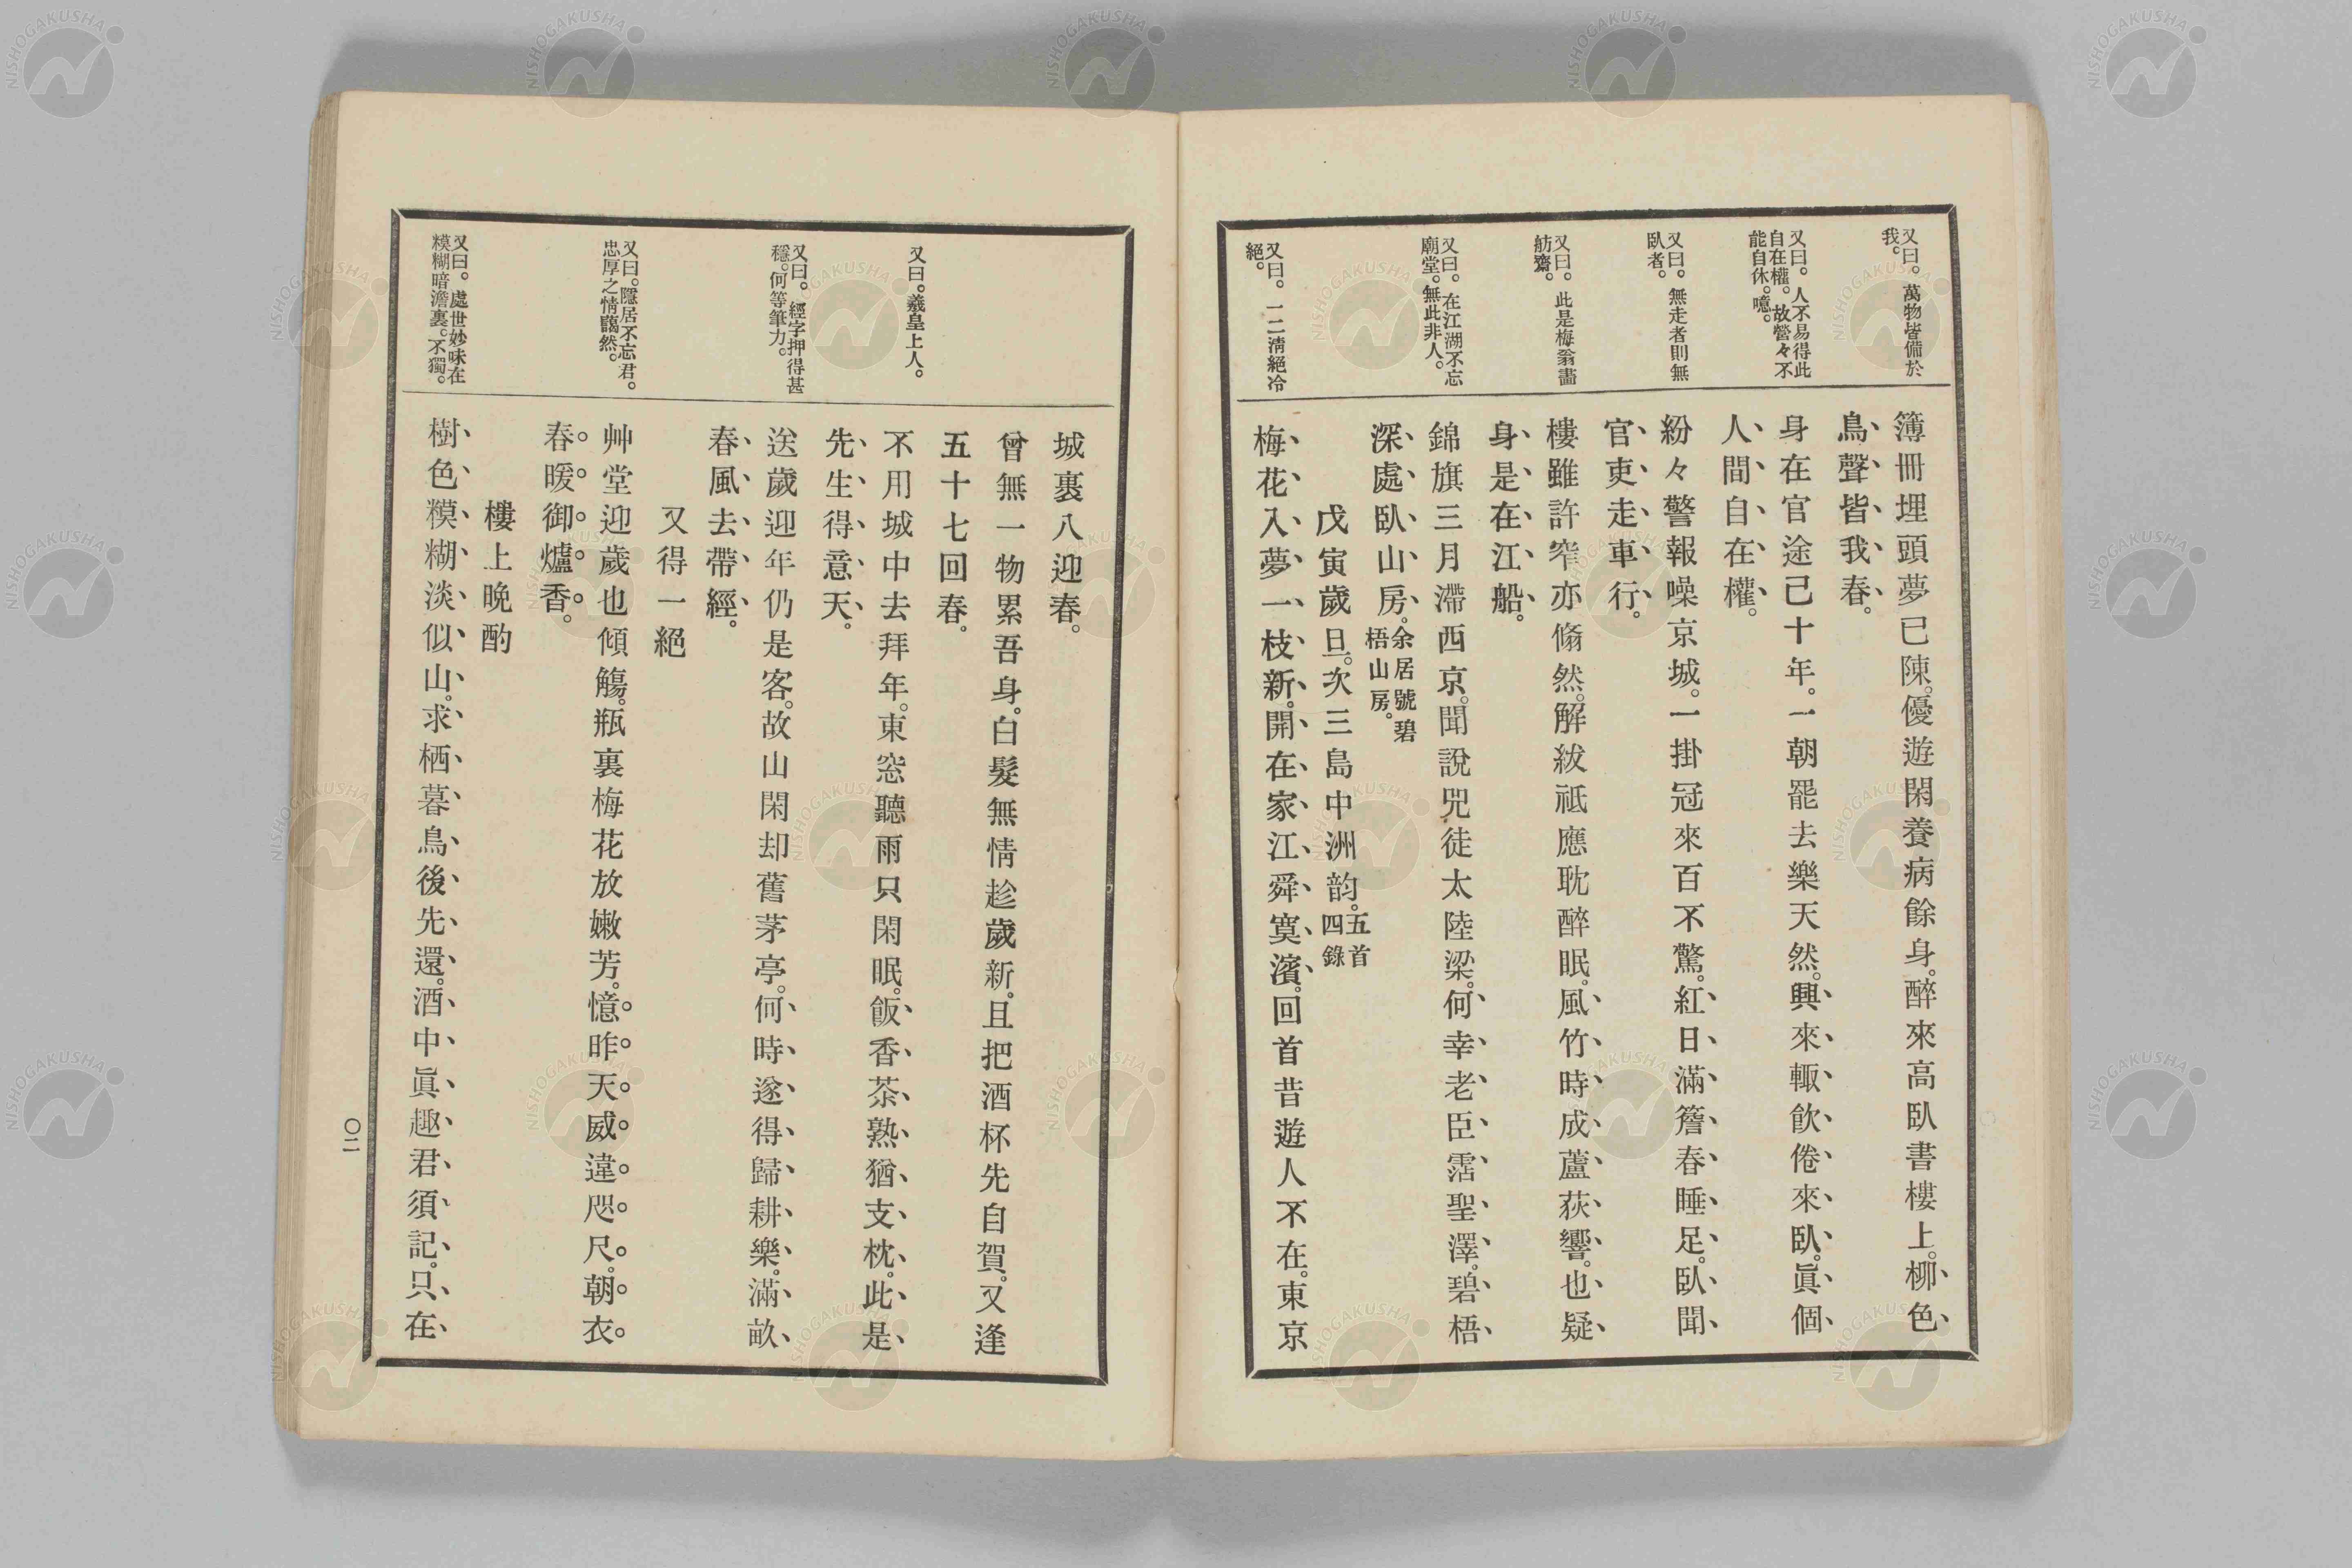 又曰。萬物皆備於
我。
又曰。人不易得此
自在權。故營々不
能自休。噫。
又曰。無走者則無
臥者。
又曰。此是梅翁畫
舫齋。
又曰。在江湖不忘
廟堂。無此非人。
又曰。一二淸絕冷
絕。
簿冊埋頭夢已陳。優遊閑養病餘身。醉來高臥書樓上。柳色
鳥聲皆我春。
身在官途已十年。一朝罷去樂天然。興來輙飮倦來臥。眞個
人間自在權。
紛々警報噪京城。一掛冠來百不驚。紅日滿簷春睡足。臥聞
官吏走車行。
樓雖許窄亦翛然。解紱祗應耽醉眠。風竹時成蘆荻響。也疑
身是在江船。
錦旗三月滯西京。聞說兇徒太陸梁。何幸老臣霑聖澤。碧梧
深處臥山房。余居號碧
梧山房。
戊寅歲旦。次三島中洲韵。五首
四錄
梅花入夢一枝新。開在家江舜寞濱。回首昔遊人不在。東京
又曰。羲皇上人。
又曰。經字押得甚
穩。何等筆力。
又曰。隱居不忘君。
忠厚之情靄然。
又曰。處世妙味在
糢糊暗澹裏。不獨。
城裏八迎春。
曾無一物累吾身。白髮無情趁歲新。且把酒杯先自賀。又逢
五十七回春。
不用城中去拜年。東窓聽雨只閑眠。飯香茶熟猶支枕。此是
先生得意天。
送歲迎年仍是客。故山閑却舊茅亭。何時遂得歸耕樂。滿畝
春風去帶經。
又得一絕
艸堂迎歲也傾觴。瓶裏梅花放嫩芳。憶昨天威違咫尺。朝衣
春暖御爐香。
樓上晩酌
樹色糢糊淡似山。求栖暮鳥後先還。酒中眞趣君須記。只在
〇二